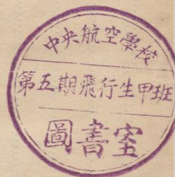 中央航空學校
第五期飛行生甲班
圖書室